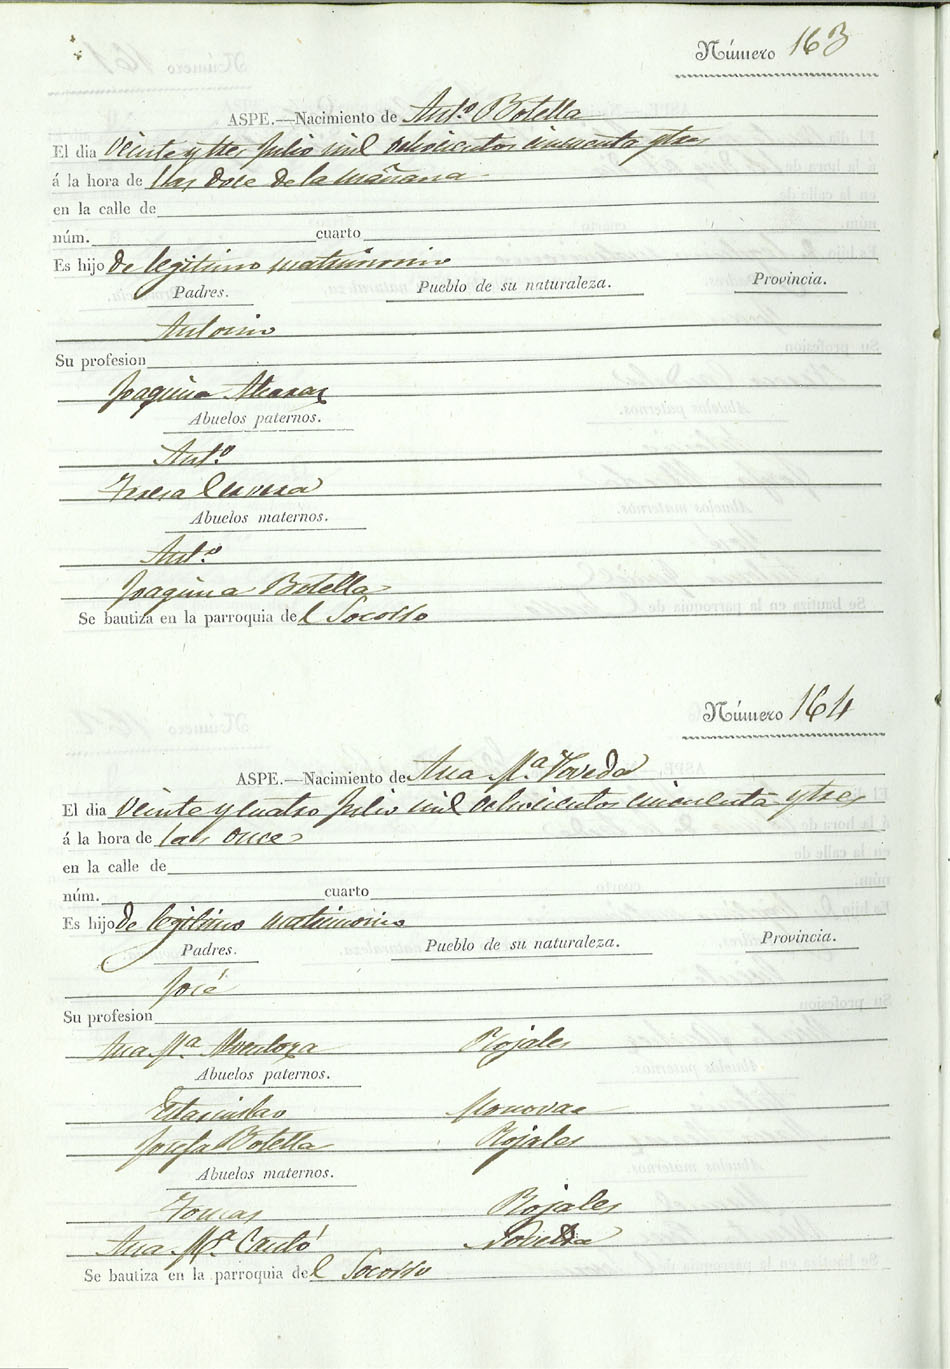 Número 163
ASPE.—Nacimiento de Ant.º Botella
El dia Veinte y tres Julio mil ochocientos cincuenta y tres
á la hora de las doce de la mañana
en la calle de
núm. cuarto
Es hijo de legitimo matrimonio
Padres. Pueblo de su naturaleza. Provincia.
Antonio
Su profesion
Joaquina Alcaraz
Abuelos paternos.
Ant.º
Teresa Cervera
Abuelos maternos.
Ant.º
Joaquina Botella
Se bautiza en la parroquia del Socorro
Número 164
ASPE.—Nacimiento de Ana M.ª Poveda
El dia Veinte y cuatro Julio mil ochocientos cincuenta y tres
á la hora de las once
en la calle de
núm. cuarto
Es hijo de legitimo matrimonio
Padres. Pueblo de su naturaleza. Provincia.
José
Su profesion
Ana M.ª Mendoza Rojales
Abuelos paternos.
Estanislao Monovar
Josefa Botella Rojales
Abuelos maternos.
Tomas Rojales
Ana M.ª Cantó Novelda
Se bautiza en la parroquia del Socorro